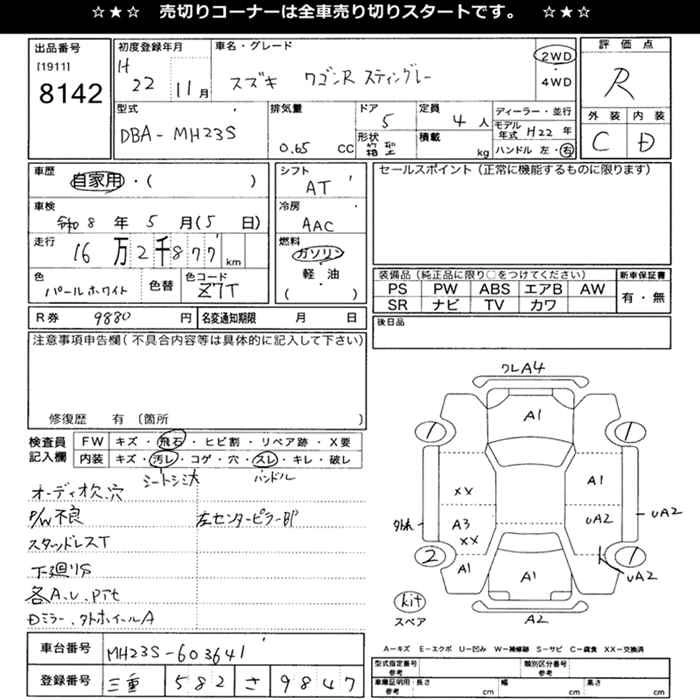 ☆★☆ 売切りコーナーは全車売り切りスタートです。 ☆★☆
出品番号
[1911]
8142
初度登録年月
H 22 11月
車名・グレード
スズキ ワゴンR スティングレー
2WD
・
4WD
評価点
R
外装 内装
C D
型式
DBA-MH23S
排気量
0.65 CC
ドア
5
形状
箱型
定員
4 人
積載
kg
ディーラー・並行
モデル年式 H22 年
ハンドル 左・右
車歴
自家用・( )
車検
令和8年5月(5日)
走行
16万2千877km
色
パールホワイト
色替
色コード
Z7T
シフト
AT
冷房
AAC
燃料
ガソリン
・
軽・油
( )
セールスポイント(正常に機能するものに限ります)
装備品(純正品に限り○をつけてください)
PS PW ABS エアB AW
SR ナビ TV カワ
新車保証書
有・無
後日品
R券 9880 円
名変通知期限 月 日
注意事項申告欄(不具合内容等は具体的に記入して下さい)
修復歴 有〔箇所 〕
検査員記入欄
FW キズ・飛石・ヒビ割・リペア跡・X要
内装 キズ・汚レ・コゲ・穴・スレ・キレ・破レ
シートシミ大 ハンドル
オーディオ欠.穴
P/W不良
左センターピラー部
スタッドレスT
下廻りS
各A.U.Pテ
Dミラー.クトホイールA
車台番号 MH23S-603641
登録番号 三重 582 さ 9847
ワレA4
A1
1
1
XX
A1
A3
XX
UA2
UA2
2
1
A1
A1
UA2
kit
スペア
A2
A-キズ E-エクボ U-凹み W-補修跡 S-サビ C-腐食 XX-交換済
型式指定番号
参考
類別区分番号
車庫証明用
参考
長さ cm
幅 cm
高さ cm